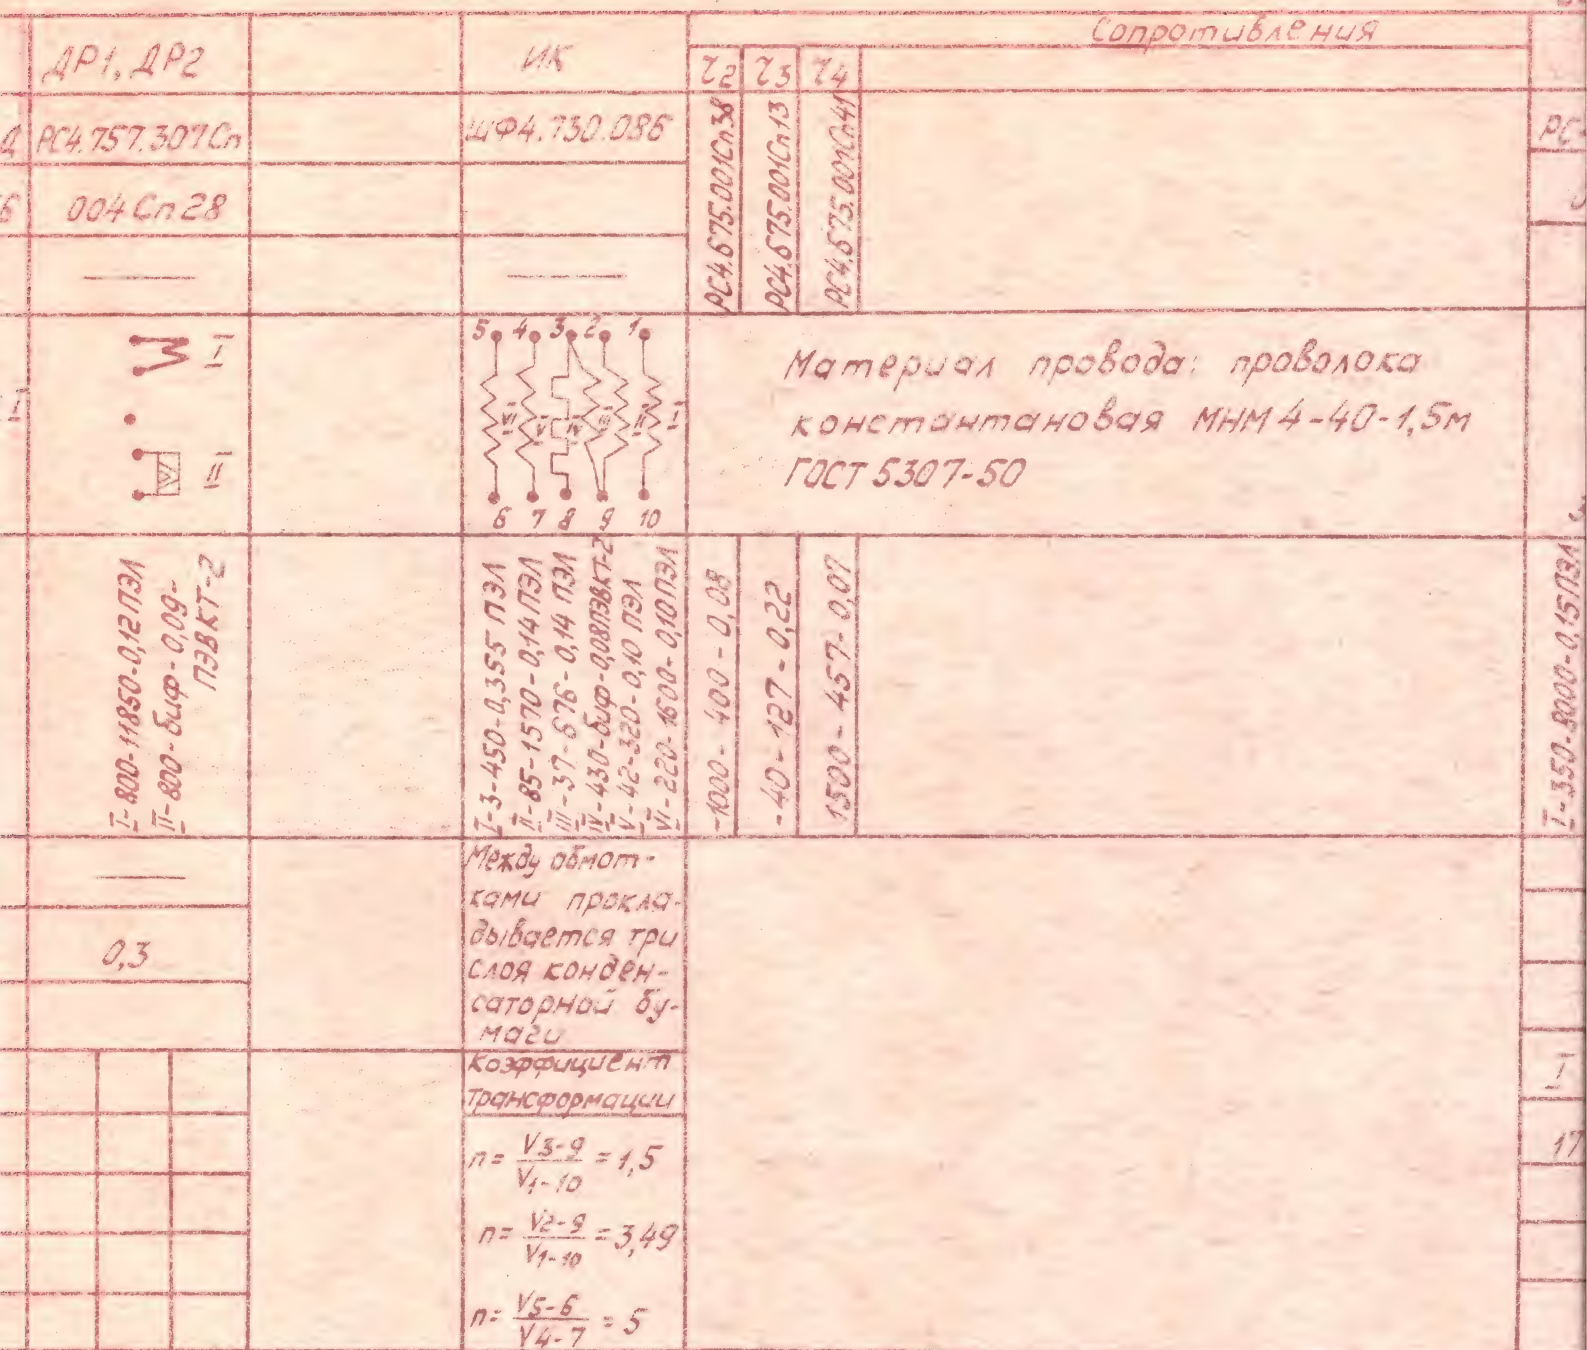 Сопротивления
ДР1, ДР2
ИК
r2
r3
r4
РС4.757.307Сп
ШФ4.730.086
РС4.675.001Сп38
РС4.675.001Сп13
РС4.675.001Сп41
РС
004 Сп 28
I
II
5 4 3 2 1
VI V IV III II I
6 7 8 9 10
Материал провода: проволока
константановая МНМ 4-40-1,5м
ГОСТ 5307-50
I
I-800-11850-0,12 ПЭЛ
II-800-биф-0,09-
ПЭВКТ-2
I-3-450-0,355 ПЭЛ
II-85-1570-0,14 ПЭЛ
III-37-676-0,14 ПЭЛ
IV-430-биф-0,08ПЭВКТ-2
V-42-320-0,10 ПЭЛ
VI-220-1600-0,10 ПЭЛ
-1000-400-0,08
-40-127-0,22
1500-457-0,07
I-350-8000-0,15ПЭЛ
Между обмот-
ками прокла-
дывается три
слоя конден-
саторной бу-
маги
0,3
Коэффициент
трансформации
n= V3-9/V1-10 = 1,5
n= V2-9/V1-10 = 3,49
n= V5-6/V4-7 = 5
I
17